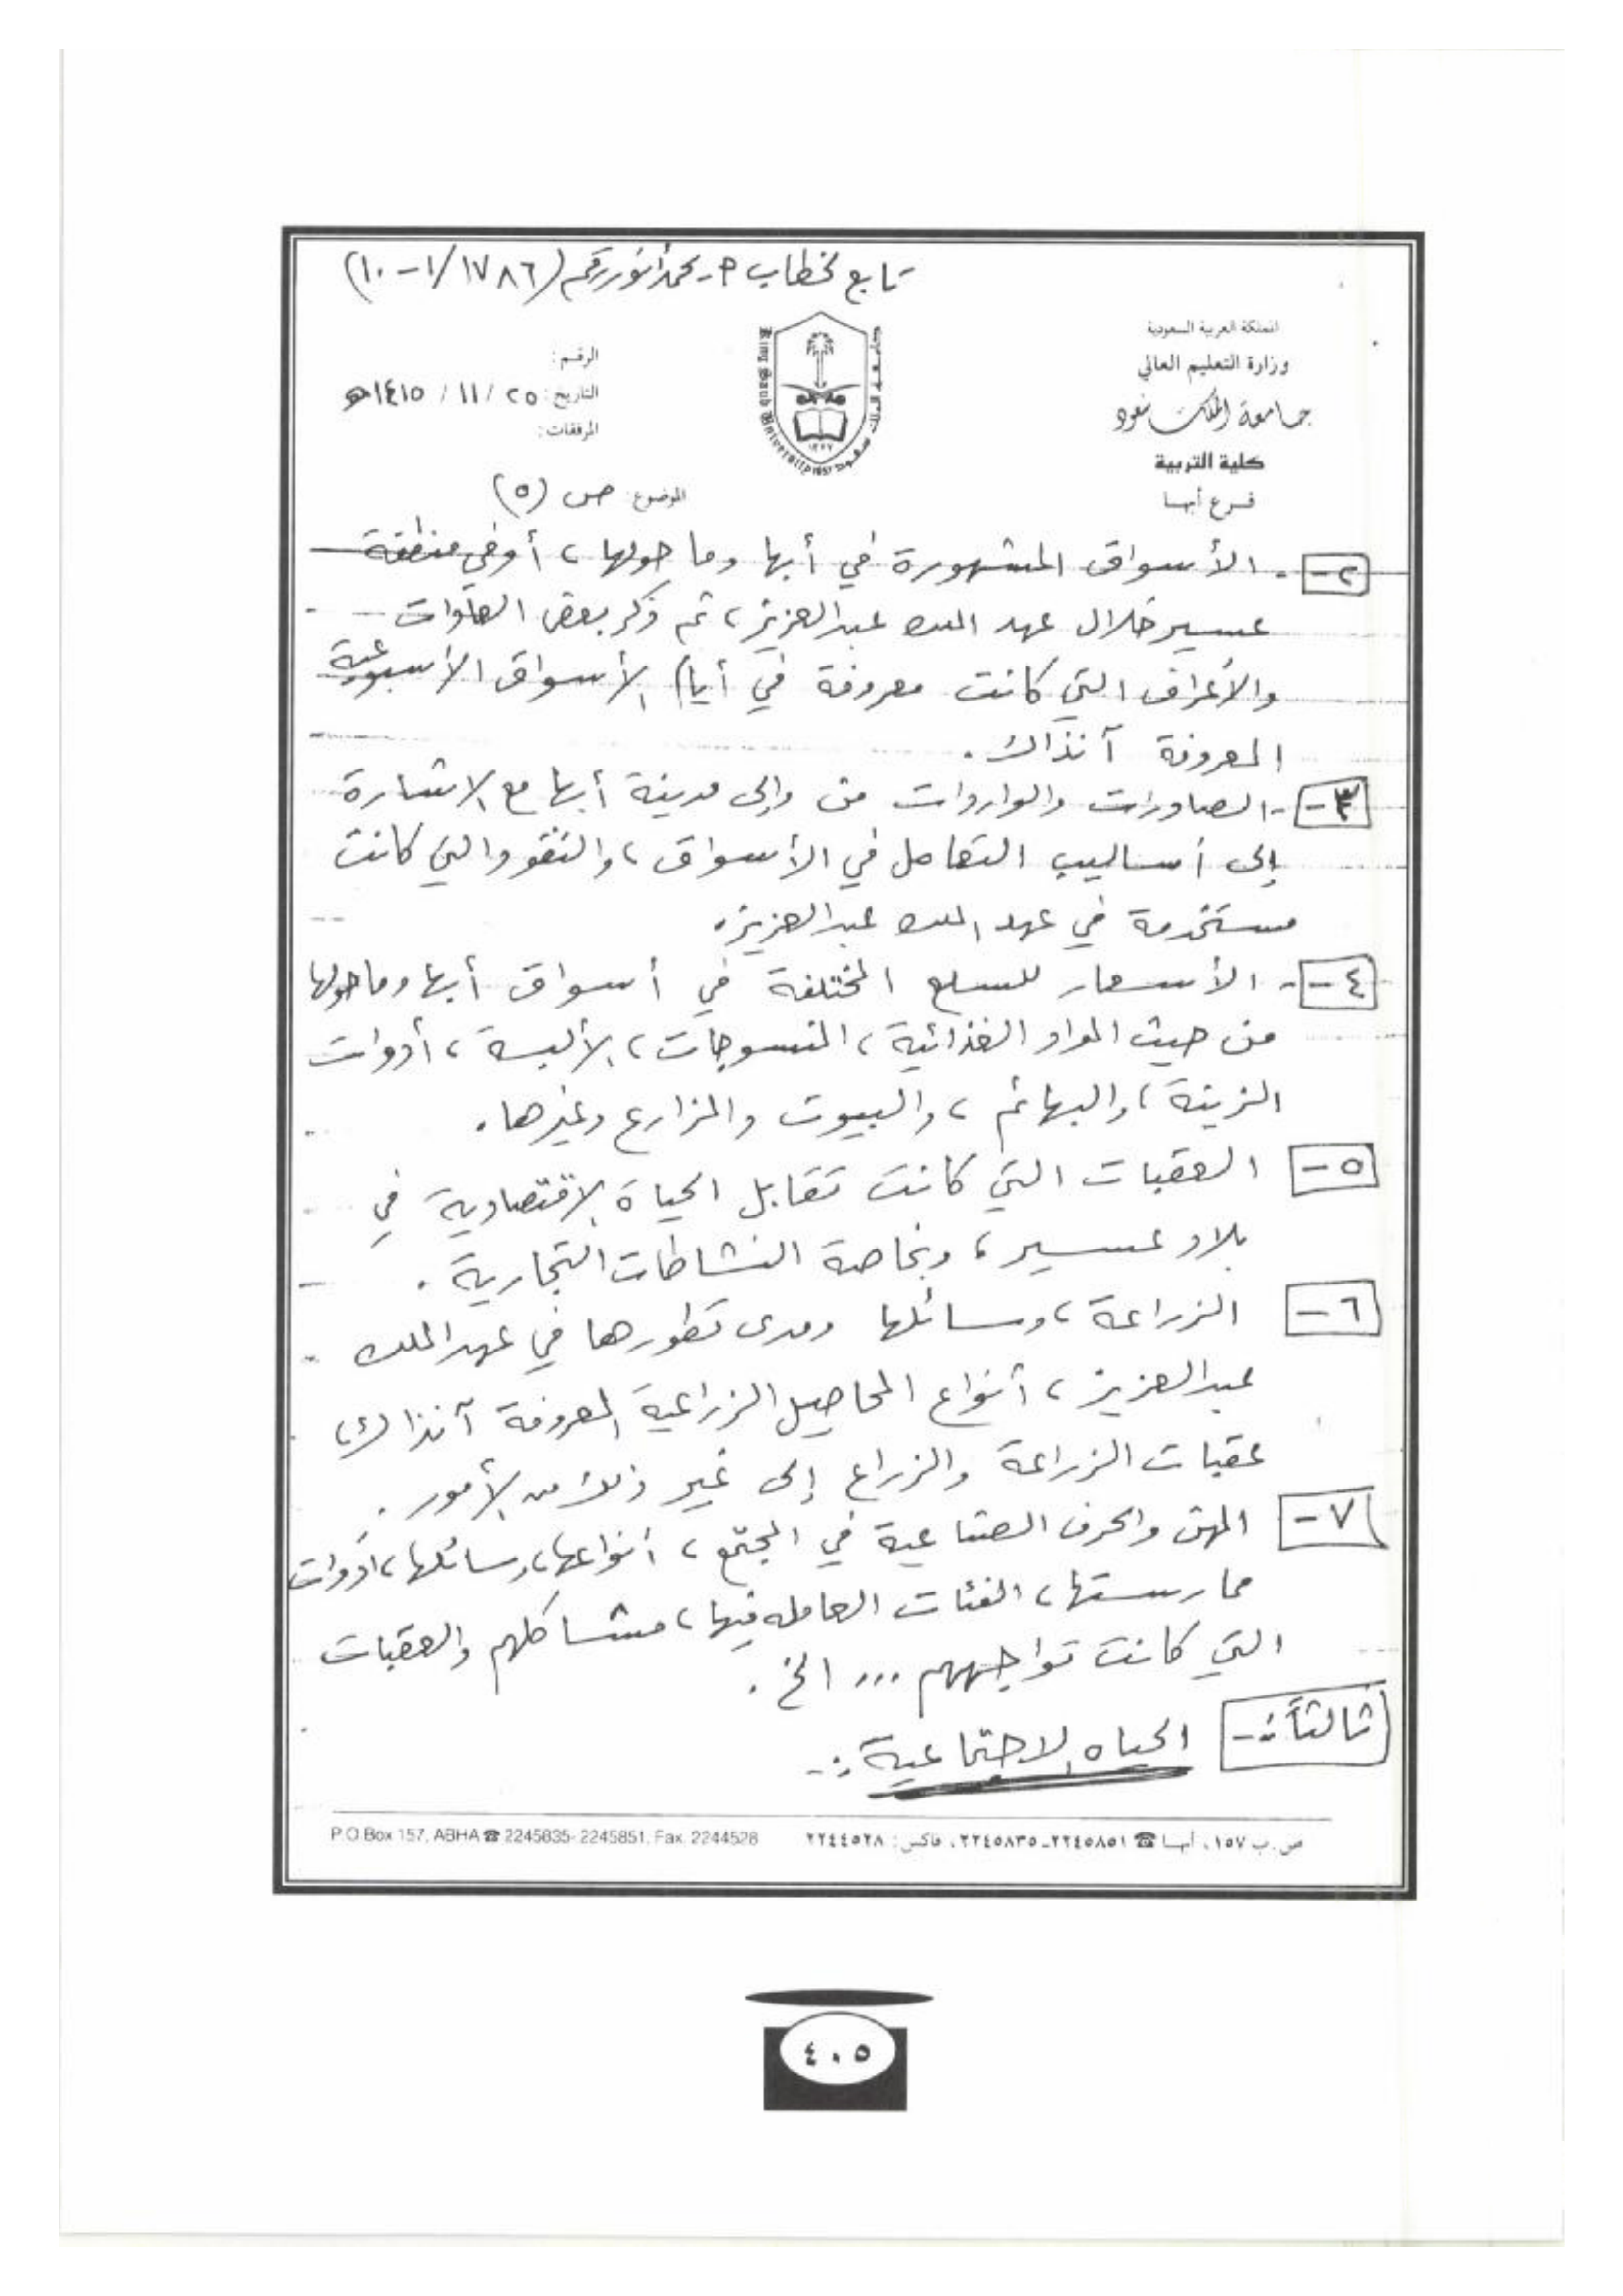 تابع لخطاب د. محمد أنور رقم (١٧٨٦/١-١٠)
المملكة العربية السعودية
وزارة التعليم العالي
جامعة الملك سعود
كلية التربية
فرع أبها
جامعة الملك سعود
King Saud University
١٣٧٧
1957
الرقم:
التاريخ: ٢٥ / ١١ / ١٤١٥هـ
المرفقات:
الموضوع: ص (٥)
٢- الأسواق المشهورة في أبها وما حولها، أو في منطقة
عسير خلال عهد الملك عبدالعزيز، ثم ذكر بعض العادات
والأعراف التي كانت معروفة في أيام الأسواق الأسبوعية
المعروفة آنذاك.
٣- الصادرات والواردات من وإلى مدينة أبها مع الاشارة
إلى أساليب التعامل في الأسواق، والنقود التي كانت
مستخدمة في عهد الملك عبدالعزيز.
٤- الأسعار للسلع المختلفة في أسواق أبها وما حولها
من حيث المواد الغذائية، المنسوجات، الألبسة، أدوات
الزينة، والبهائم، والبيوت والمزارع وغيرها.
٥- العقبات التي كانت تقابل الحياة الاقتصادية في
بلاد عسير، وبخاصة النشاطات التجارية.
٦- الزراعة، وسائلها ومدى تطورها في عهد الملك
عبدالعزيز، أنواع المحاصيل الزراعية المعروفة آنذاك،
عقبات الزراعة والزراع إلى غير ذلك من الأمور.
٧- المهن والحرف الصناعية في المجتمع، أنواعها، وسائلها، أدوات
ممارستها، الفئات العامله فيها، مشاكلهم والعقبات
التي كانت تواجههم ... الخ.
ثالثاً:- الحياه الاجتماعية:-
ص.ب ١٥٧، أبها ☎ ٢٢٤٥٨٥١-٢٢٤٥٨٣٥، فاكس: ٢٢٤٤٥٢٨
P.O.Box 157, ABHA ☎ 2245835- 2245851, Fax. 2244528
٤٠٥